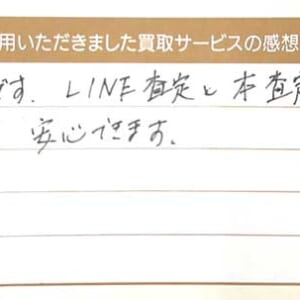 用いただきました買取サービスの感想
です. LINE査定と本査定
安心できます.